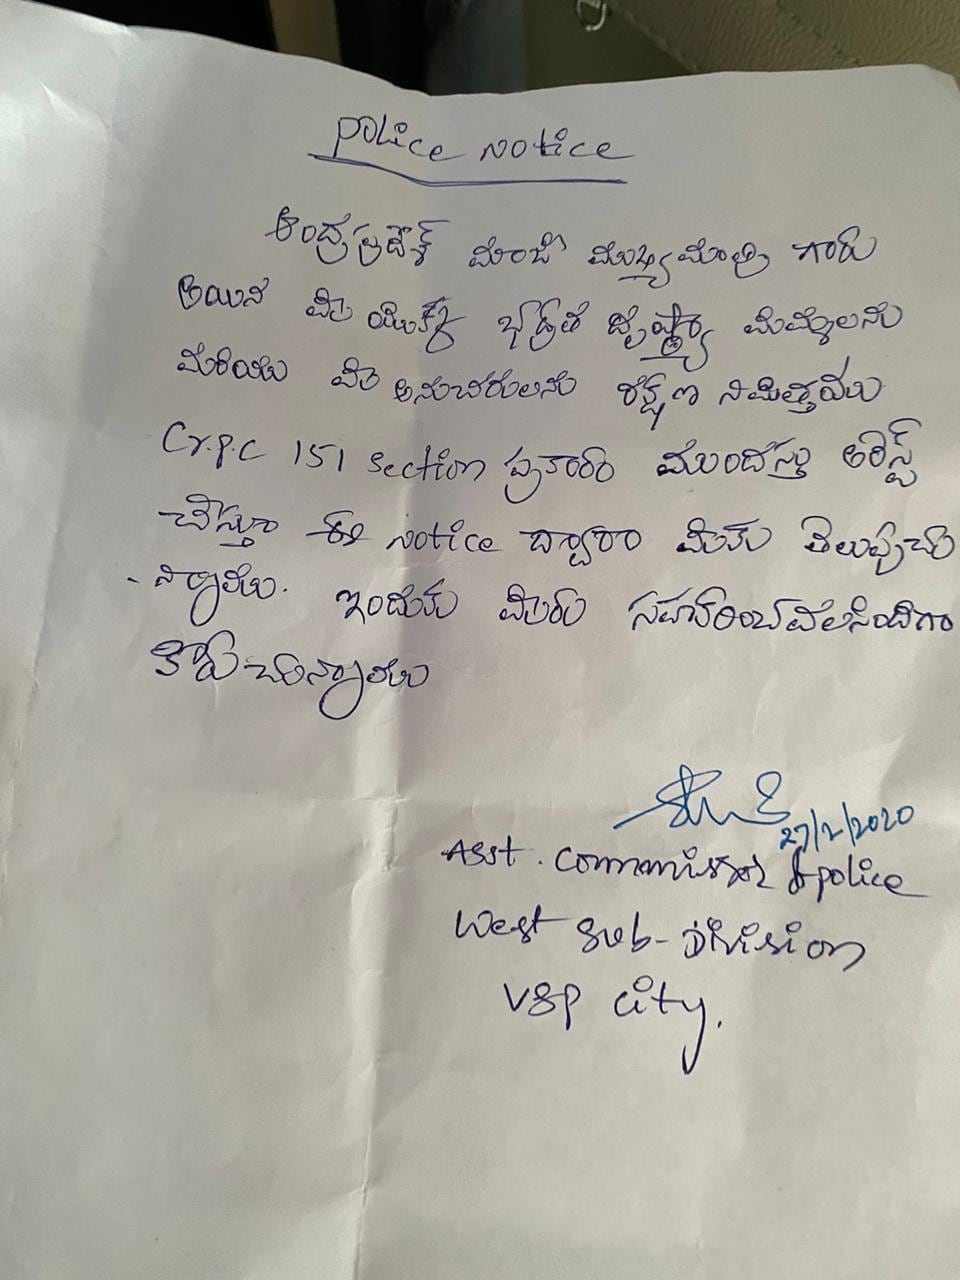 Police Notice
ఆంధ్రప్రదేశ్ మాజీ ముఖ్యమంత్రి గారు
అయిన మీ యొక్క భద్రత దృష్ట్యా మిమ్మలను
మరియు మీ అనుచరులను రక్షణ నిమిత్తము
Cr.P.C 151 section ప్రకారం ముందస్తు అరెస్ట్
చేస్తూ ఈ notice ద్వారా మీకు తెలుపుచు
-న్నాము. ఇందుకు మీరు సహకరించవలసిందిగా
కోరుచున్నాము
27/2/2020
Asst. Commissioner of police
West Sub-Division
VSP City.